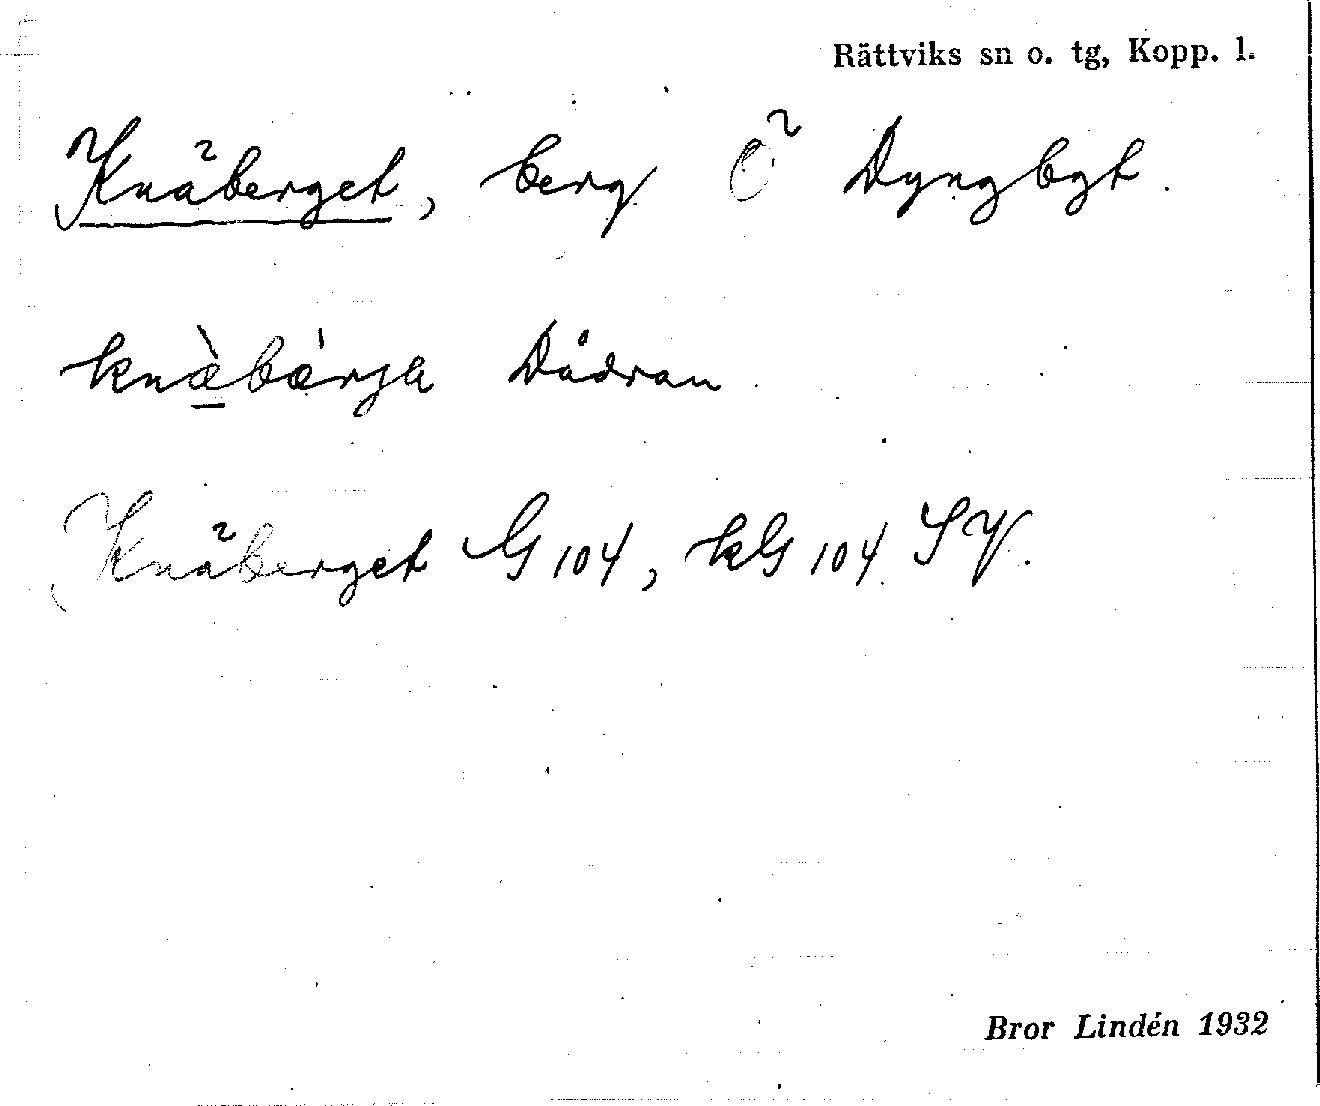 Rättviks sn o. tg, Kopp. l.
Knäberget, berg Ö Dyngbgt.
knæ̀bærja Dådran
Knäberget G 104, kG 104 SV.
Bror Lindén 1932